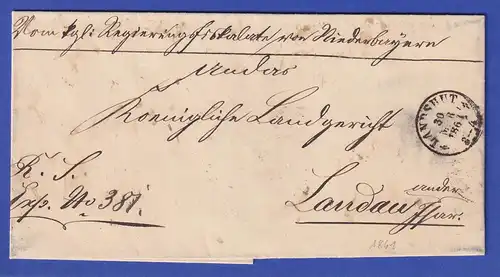 Vom kgl: Regierungsfiskalate von Niederbayern
An das
Koenigliche Landgericht
LANDSHUT
30
186
R. S.
Exp. No 381.
Landau
an der
Isar.
1861